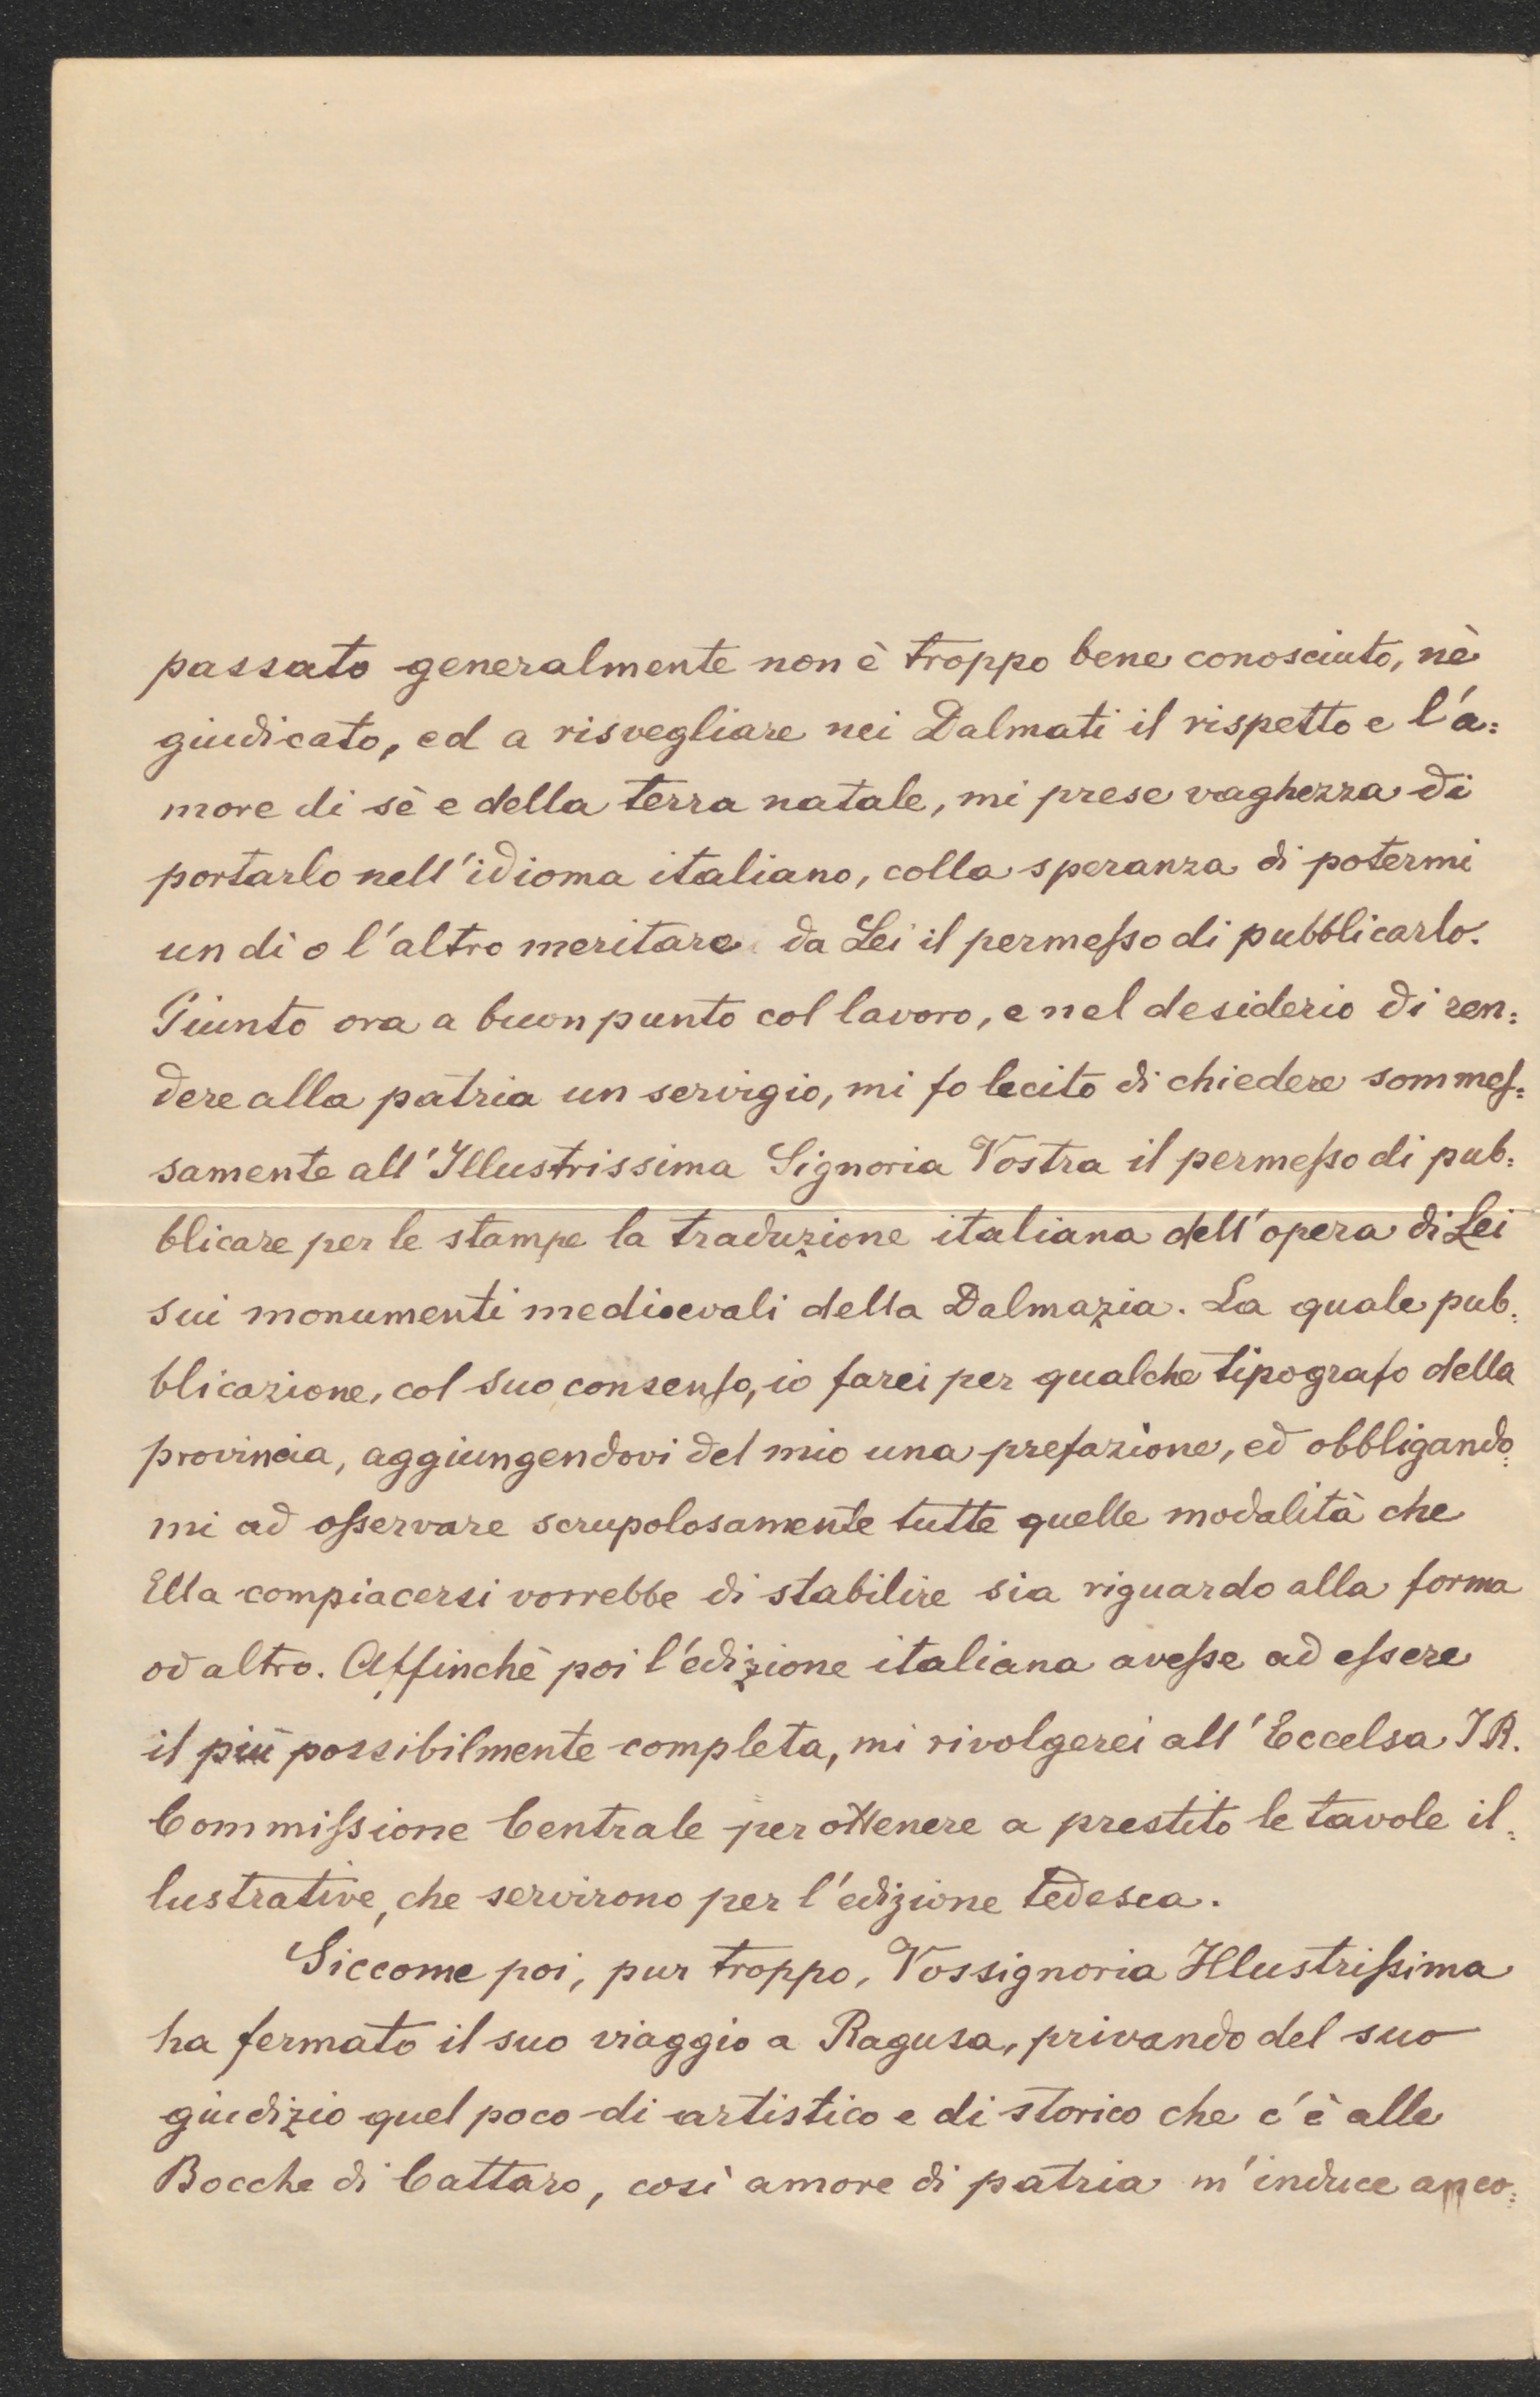 passato generalmente non è troppo bene conosciuto, nè
giudicato, ed a risvegliare nei Dalmati il rispetto e l'a:
more di sè e della terra natale, mi prese vaghezza di
portarlo nell'idioma italiano, colla speranza di potermi
un dì o l'altro meritare da Lei il permeſso di pubblicarlo.
Giunto ora a buon punto col lavoro, e nel desiderio di ren:
dere alla patria un servigio, mi fo lecito di chiedere sommeſ:
samente all'Illustrissima Signoria Vostra il permeſso di pub:
blicare per le stampe la traduzione italiana dell'opera di Lei
sui monumenti medioevali della Dalmazia. La quale pub:
blicazione, col suo consenſo, io farei per qualche tipografo della
provincia, aggiungendovi del mio una prefazione, ed obbligando:
mi ad oſservare scrupolosamente tutte quelle modalità che
Ella compiacersi vorrebbe di stabilire sia riguardo alla forma
od altro. Affinchè poi l'edizione italiana aveſse ad eſsere
il più possibilmente completa, mi rivolgerei all'Eccelsa I R.
Commiſsione Centrale per ottenere a prestito le tavole il:
lustrative, che servirono per l'edizione tedesca.
Siccome poi, pur troppo, Vossignoria Illustriſsima
ha fermato il suo viaggio a Ragusa, privando del suo
giudizio quel poco di artistico e di storico che c'è alle
Bocche di Cattaro, così amore di patria m'induce anco: